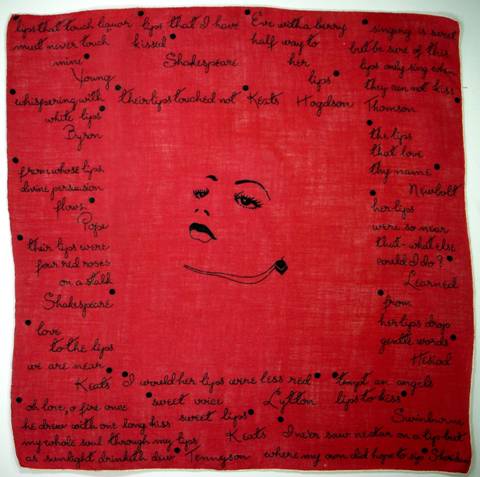 "lips that touch liquor
must never touch
mine"
Young
"lips that I have
kissed"
Shakespeare
"Eve with a berry
half way to
her
lips"
Hogdson
"singing is sweet
but be sure of this
lips only sing when
they can not kiss"
Thomson
"whispering with
white lips"
Byron
"their lips touched not" Keats
"the lips
that love
thy name"
Newbolt
"from whose lips
divine persuasion
flows"
Pope
"her lips
were so near
that - what else
could I do?"
Learned
"their lips were
four red roses
on a stalk
Shakespeare"
"from
her lips drop
gentle words"
Hesiod
"love
to the lips
we are near"
Keats
"I would her lips were less red"
Lytton
"tempt an angels
lips to kiss"
Swinburne
"oh love, o fire once
he drew with one long kiss
my whole soul through my lips
as sunlight drinketh dew" Tennyson
"sweet voice
sweet lips"
Keats
"I ne'er saw nectar on a lip but
where my own did hope to sip" Sheridan